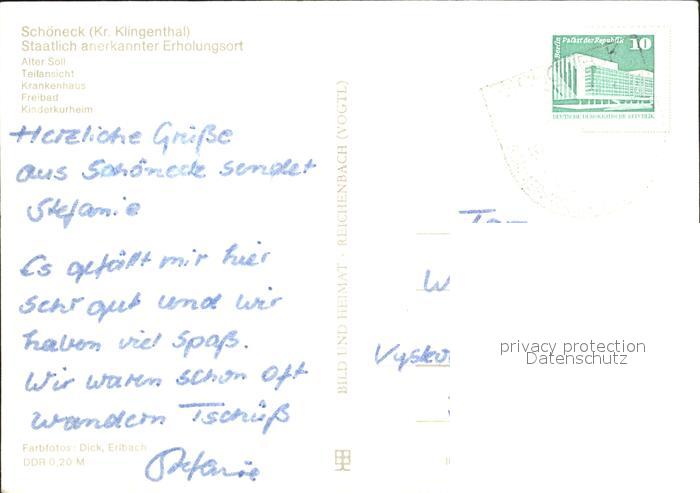 Schöneck (Kr. Klingenthal)
Staatlich anerkannter Erholungsort
Alter Söll
Teilansicht
Krankenhaus
Freibad
Kinderkurheim
Herzliche Grüße
aus Schöneck sendet
Stefanie
Es gefällt mir hier
sehr gut und wir
haben viel Spaß.
Wir waren schon oft
wandern Tschüß
Stefanie
Farbfotos: Dick, Erlbach
DDR 0,20 M
BILD UND HEIMAT · REICHENBACH (VOGTL)
Berlin Palast der Republik 10
DEUTSCHE DEMOKRATISCHE REPUBLIK
W
Vysko
privacy protection
Datenschutz